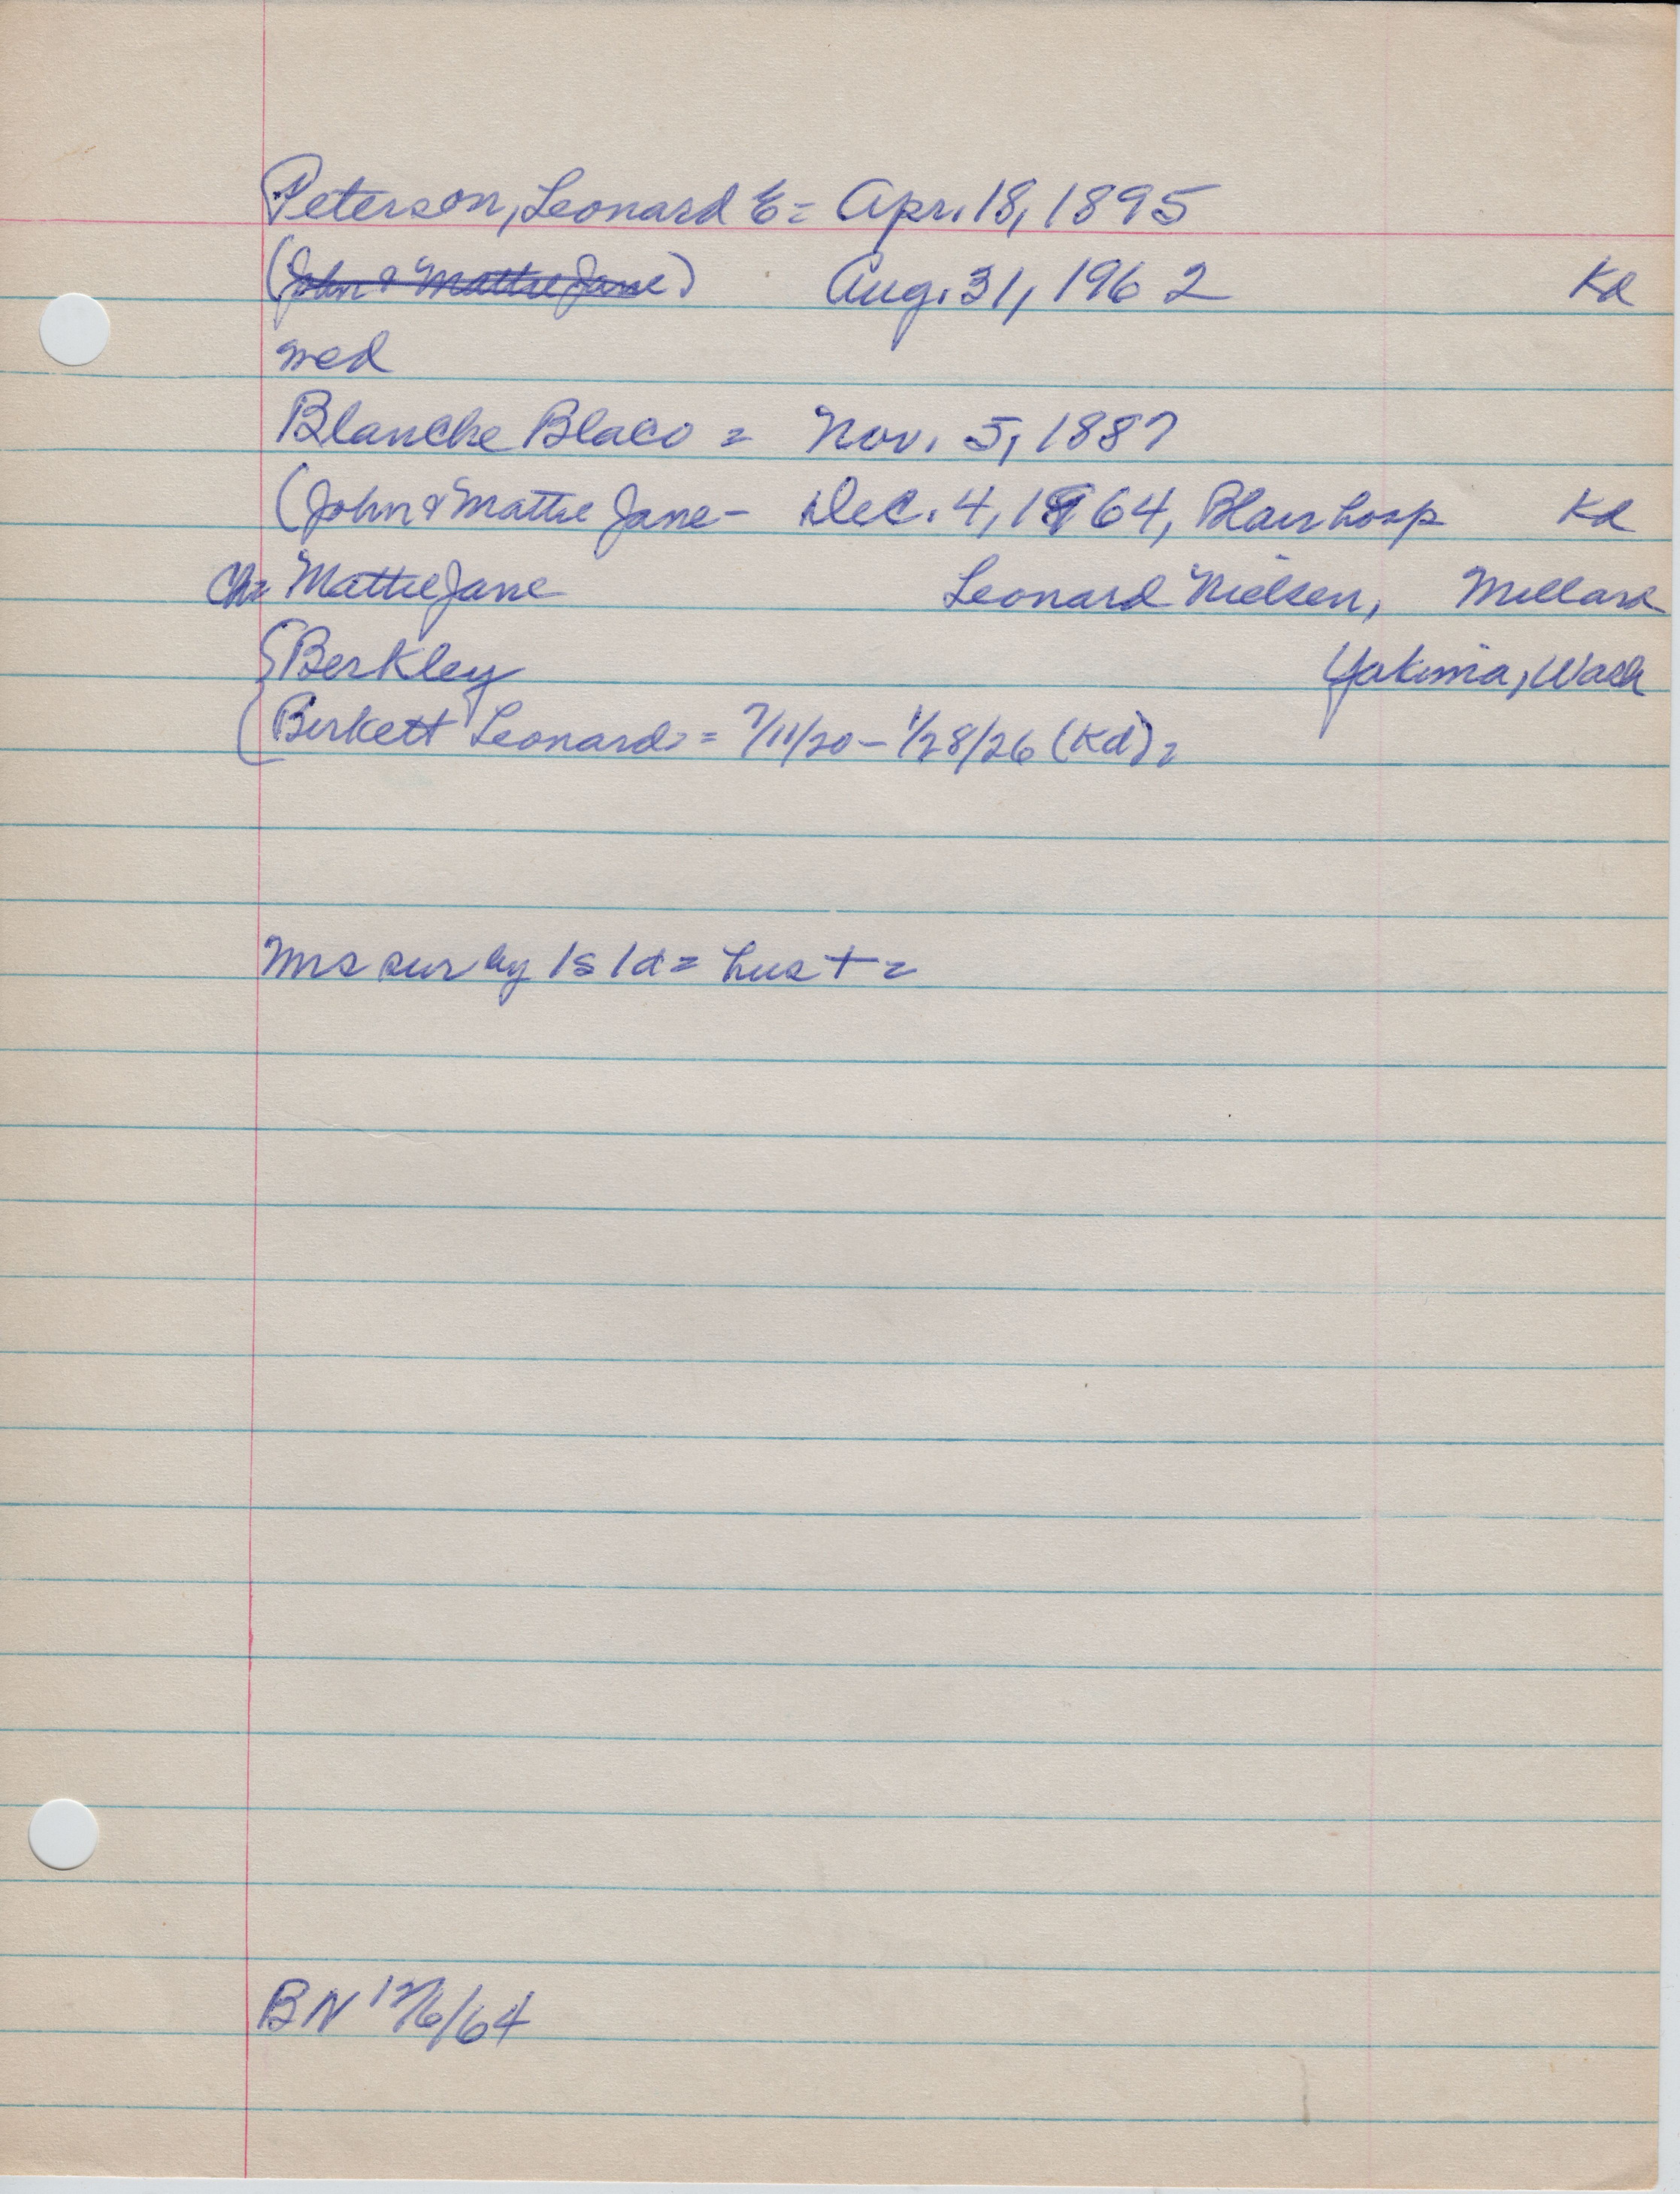 Peterson, Leonard E = Apr. 18, 1895
(John & Mattie Jane) Aug. 31, 1962 Kd
med
Blanche Blaco = Nov. 5, 1887
(John & Mattie Jane - Dec. 4, 1964, Blair hosp Kd
Ch= Mattie Jane Leonard Nielsen, Millard
Berkley Yakima, Wash
Berkett Leonard = 7/11/20 - 1/28/26 (Kd) =
Mrs sur by 1s 1d = hus + =
BN 12/6/64